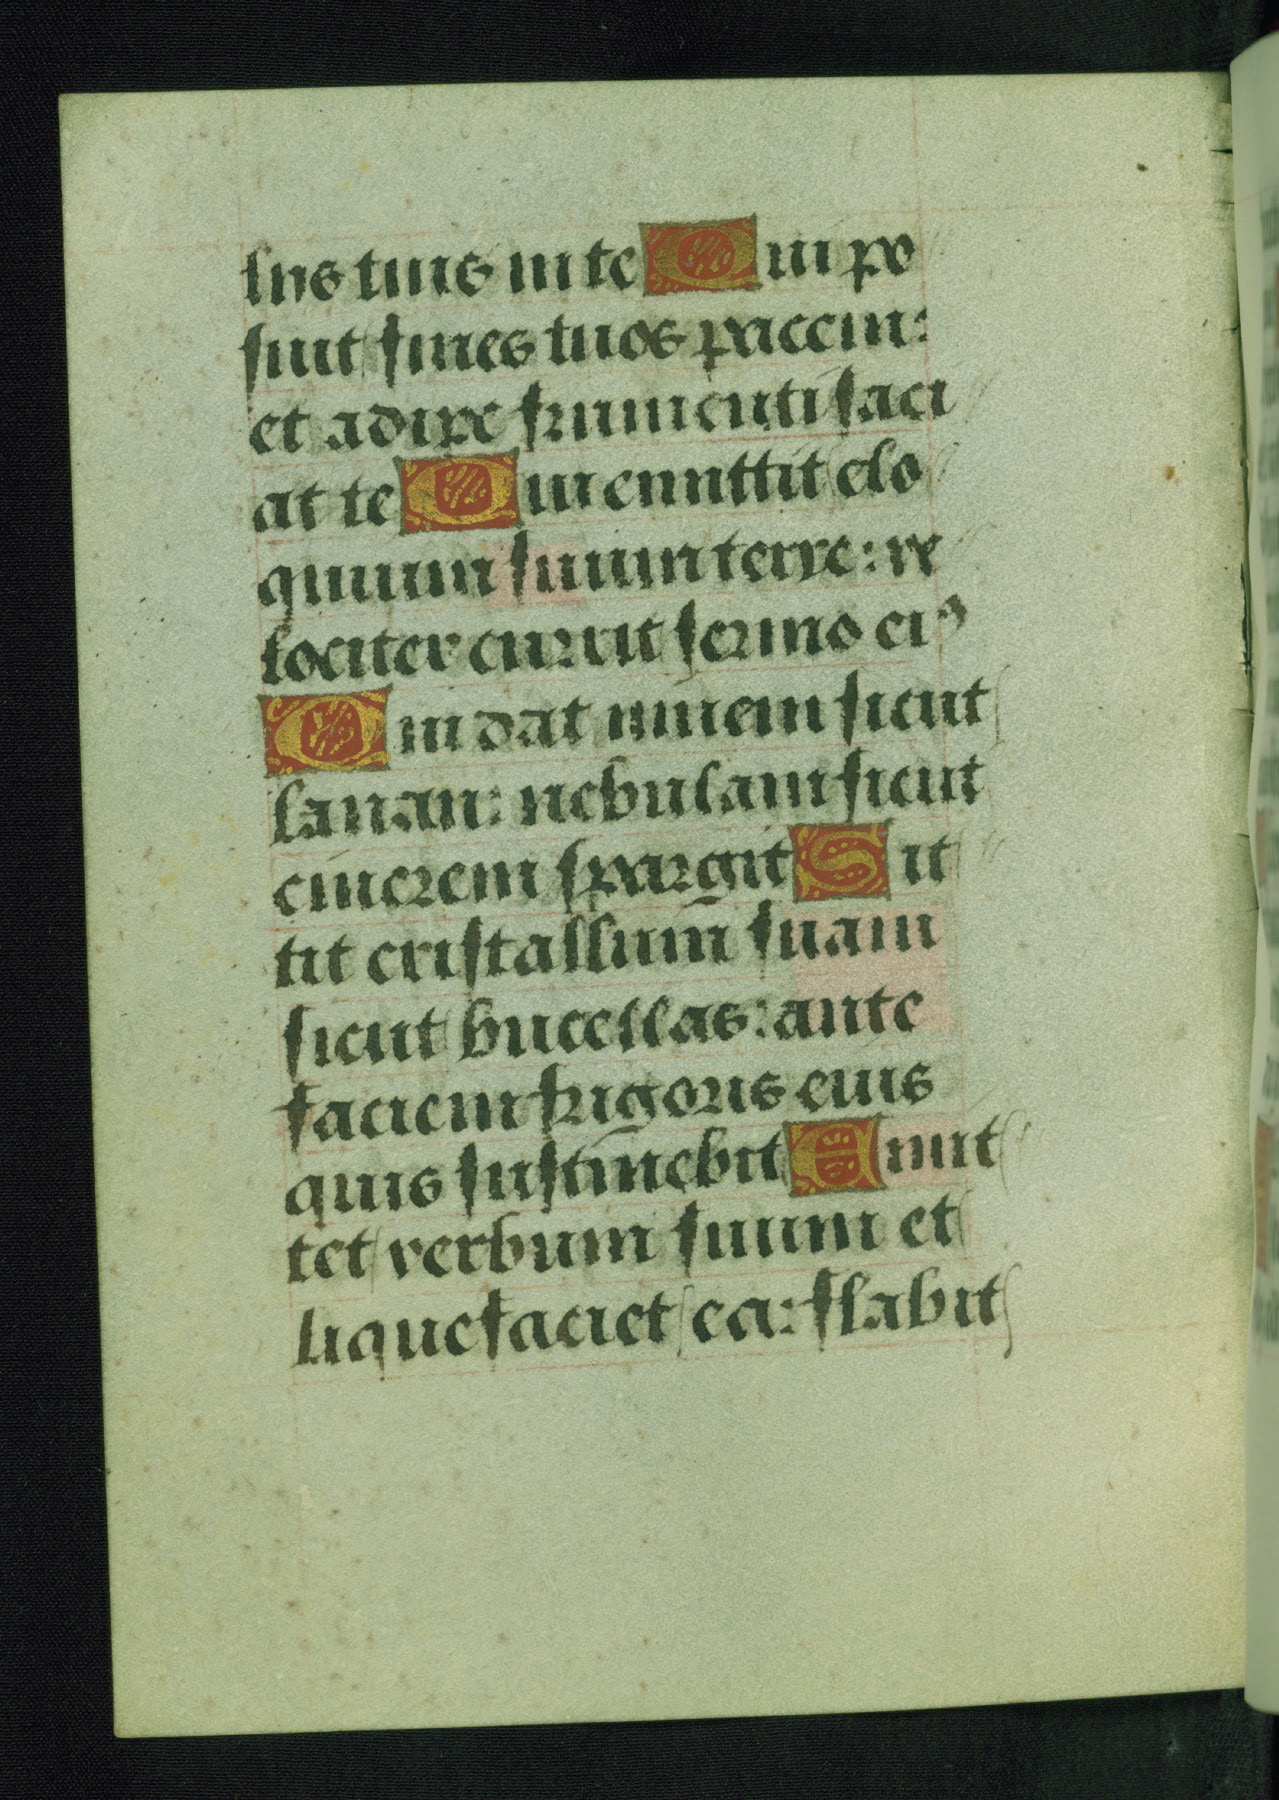 lijs tuis in te Qui po
suit fines tuos pacem:
et adipe frumenti saci
at te Qui emittit elo
quium suum terre: ve
lociter currit sermo ei⁹
Qui dat niuem sicut
lanan: nebulam sicut
cinerem spargit Sit
tit cristallum̄ suam
sicut bucellas: ante
faciem frigoris euis
quis sustinebit Emit
tet verbum suum et
liquefaciet ea: flabit